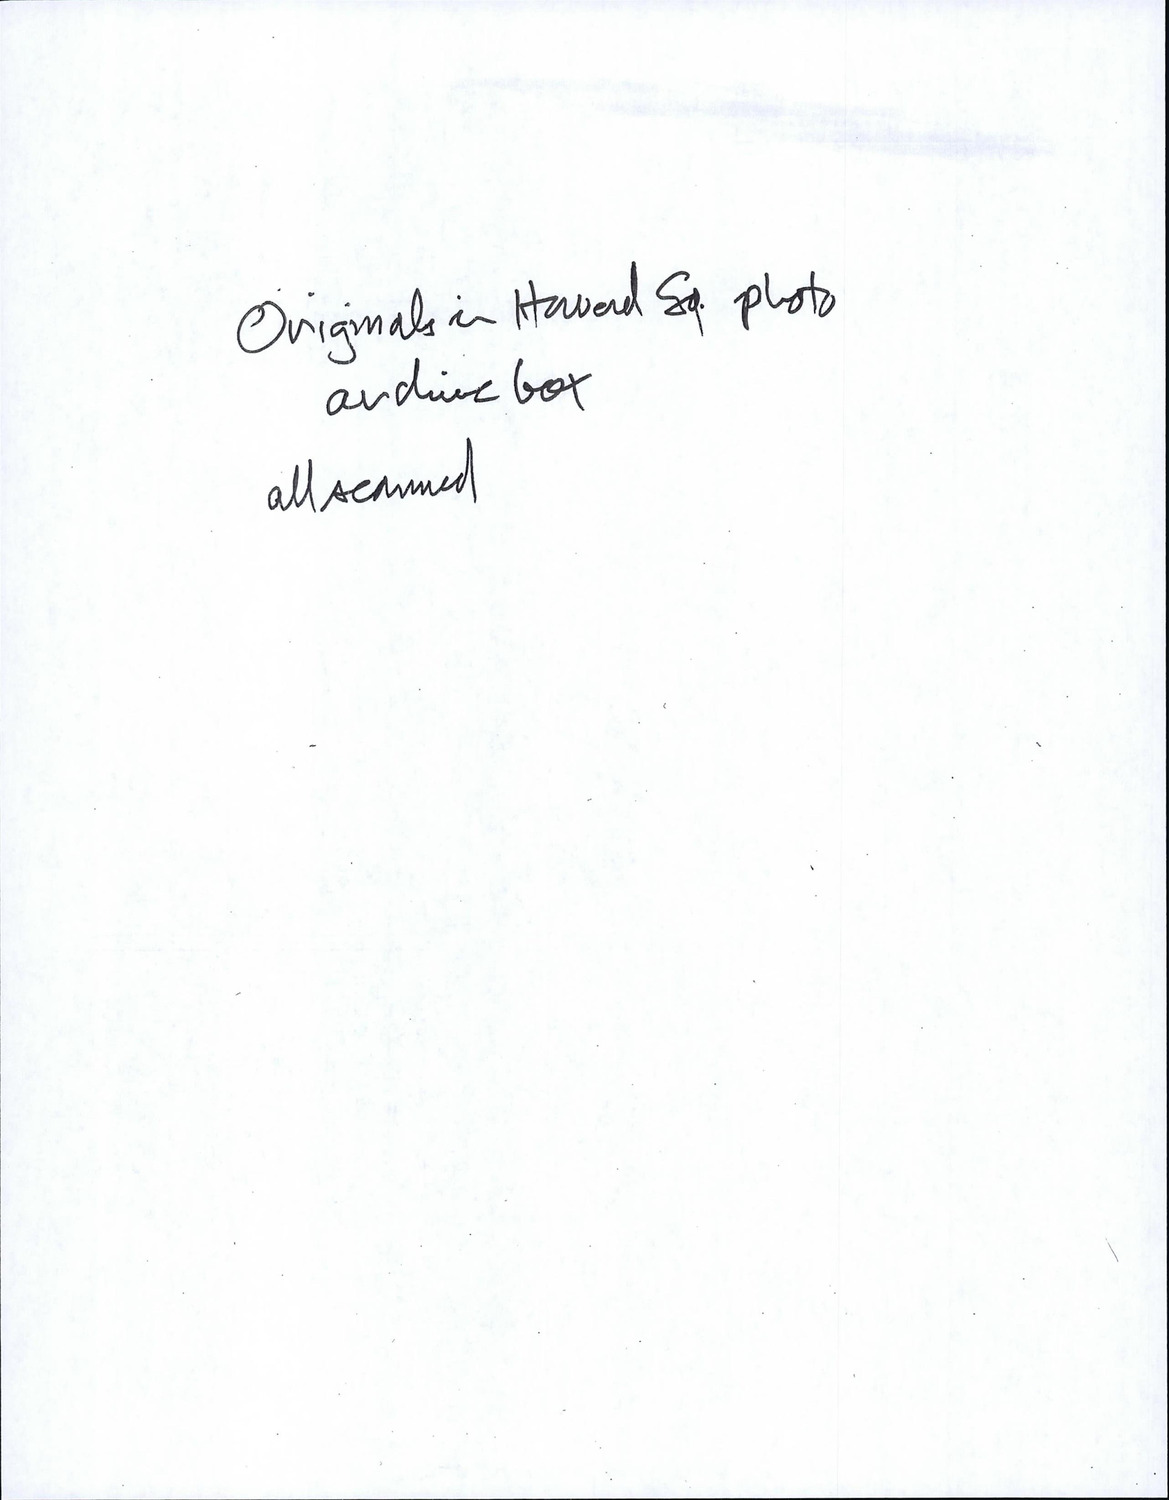 Originals in Harvard Sq. photo
archive box
all scanned